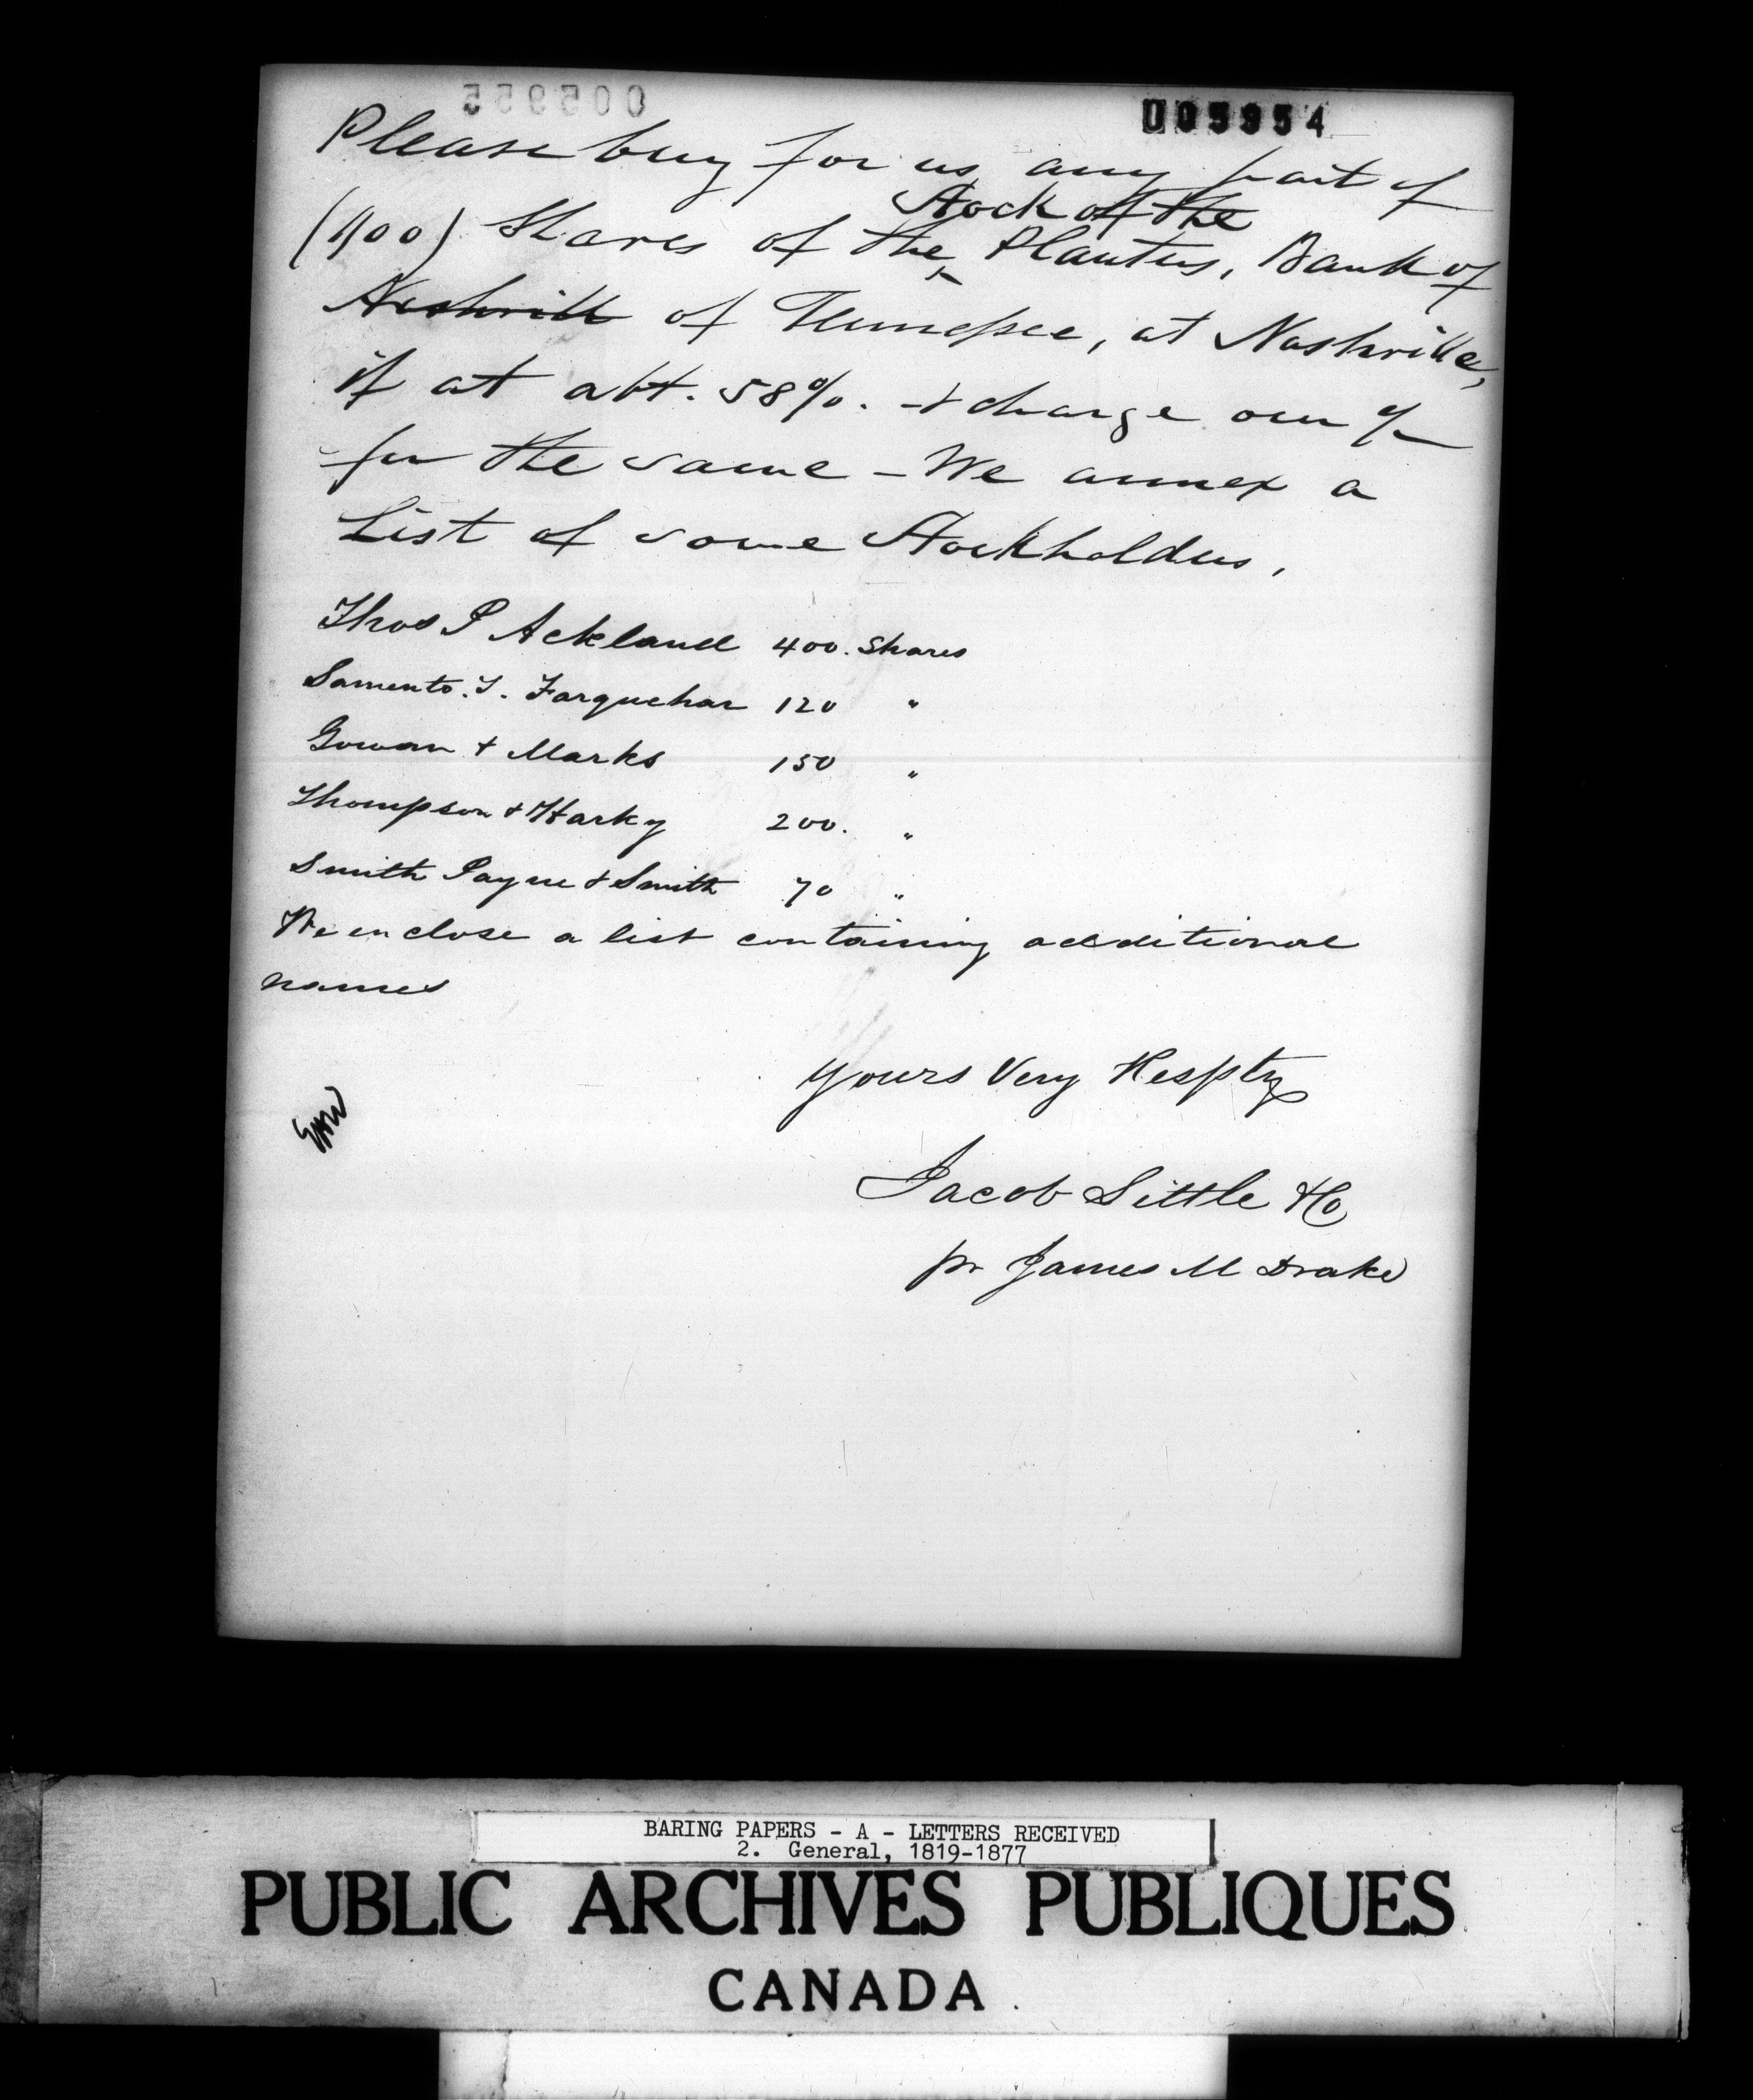 005955
005954
Please buy for us any part of
Stock of the
(400) Shares of the Planters, Bank of
Nashville of Tennessee, at Nashville,
if at abt. 58%. & charge our a/c
for the same - We annex a
List of some Stockholders,
Thos P Ackland 400. Shares
Samento. T. Farquehar 120 "
Gowan & Marks 150 "
Thompson & Harky 200. "
Smith Payne & Smith 70 "
We enclose a list containing additional
names
Yours Very Respty
Jacob Little & Co
pr James M Drake
BARING PAPERS - A - LETTERS RECEIVED
2. General, 1819-1877
PUBLIC ARCHIVES PUBLIQUES
CANADA